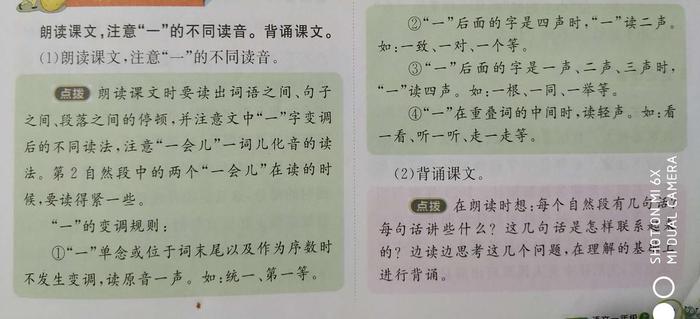 朗读课文,注意“一”的不同读音。背诵课文。
(1)朗读课文,注意“一”的不同读音。
点拨 朗读课文时要读出词语之间、句子
之间、段落之间的停顿,并注意文中“一”字变调
后的不同读法,注意“一会儿”一词儿化音的读
法。第2自然段中的两个“一会儿”在读的时
候,要读得紧一些。
“一”的变调规则:
①“一”单念或位于词末尾以及作为序数时
不发生变调,读原音一声。如:统一、第一等。
②“一”后面的字是四声时,“一”读二声。
如:一致、一对、一个等。
③“一”后面的字是一声、二声、三声时,
“一”读四声。如:一根、一同、一举等。
④“一”在重叠词的中间时,读轻声。如:看
一看、听一听、走一走等。
(2)背诵课文。
点拨 在朗读时想:每个自然段有几句话?
每句话讲些什么?这几句话是怎样联系起来
的?边读边思考这几个问题,在理解的基础上
进行背诵。
SHOT ON MI 6X
MI DUAL CAMERA